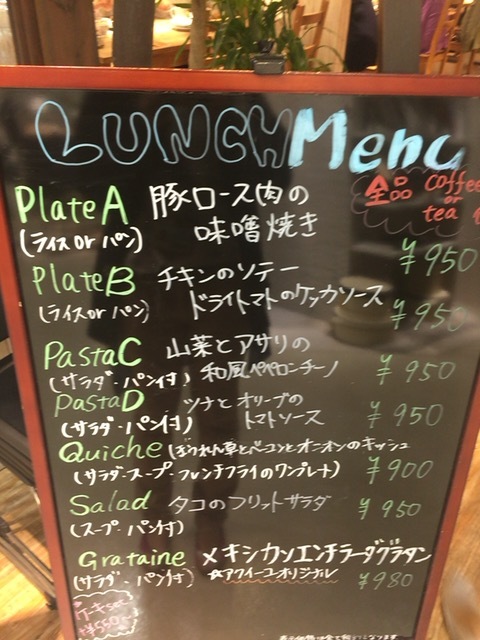 LUNCH Menu
全品 coffee
or
tea 付
Plate A 豚ロース肉の
味噌焼き
(ライス or パン) ¥950
Plate B チキンのソテー
ドライトマトのケッカソース
(ライス or パン) ¥950
Pasta C 山菜とアサリの
和風ペペロンチーノ
(サラダ・パン付) ¥950
Pasta D ツナとオリーブの
トマトソース
(サラダ・パン付) ¥950
Quiche (ほうれん草とベーコンとオニオンのキッシュ
(サラダ・スープ・フレンチフライのワンプレート) ¥900
Salad タコのフリットサラダ
(スープ・パン付) ¥950
Grataine メキシカンエンチラーダグラタン
(サラダ・パン付) ☆アクイーユオリジナル ¥980
ケーキset